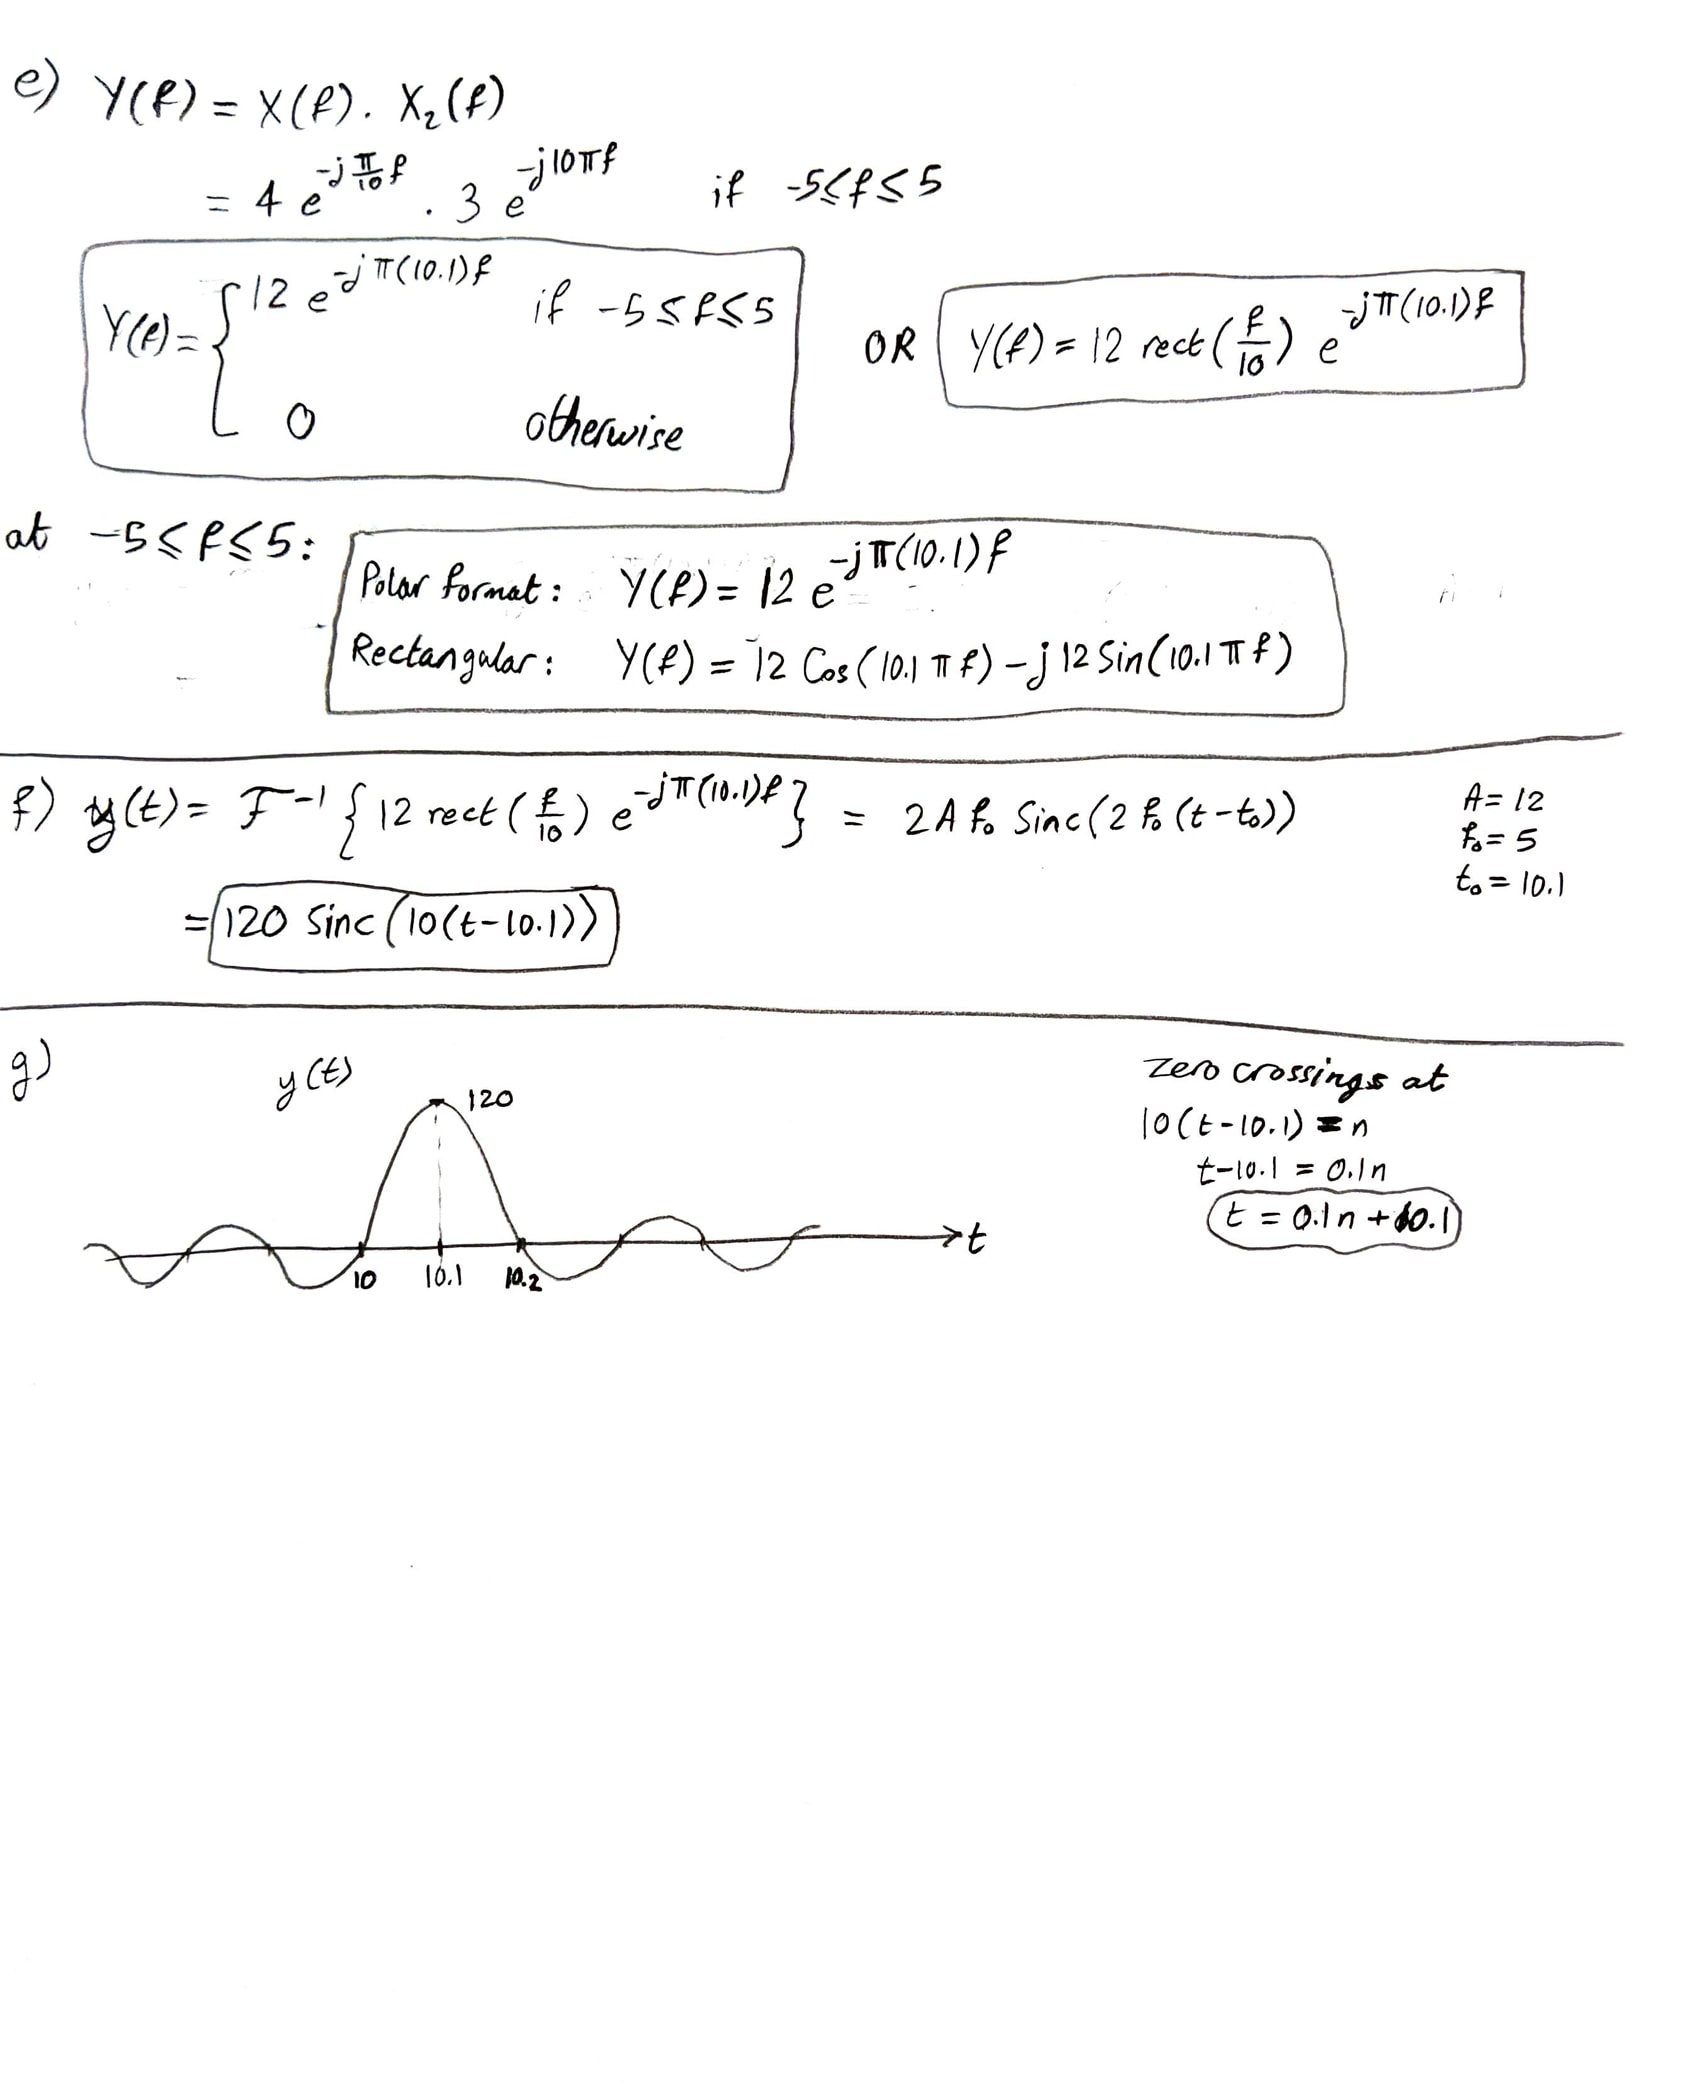 e) Y(f) = X(f) . X₂(f)
= 4 e^{-j π/10 f} . 3 e^{-j10πf} if -5≤f≤5
Y(f) = { 12 e^{-jπ(10.1)f} if -5≤f≤5
0 otherwise
OR Y(f) = 12 rect(f/10) e^{-jπ(10.1)f}
at -5≤f≤5:
Polar format: Y(f) = 12 e^{-jπ(10.1)f}
Rectangular: Y(f) = 12 Cos(10.1πf) - j 12 Sin(10.1πf)
f) y(t) = F⁻¹{12 rect(f/10) e^{-jπ(10.1)f}} = 2A f₀ Sinc(2 f₀ (t-t₀))
A = 12
f₀ = 5
t₀ = 10.1
= 120 Sinc(10(t-10.1))
g)
y(t)
120
10 10.1 10.2
t
Zero crossings at
10(t-10.1) = n
t-10.1 = 0.1n
t = 0.1n + 10.1